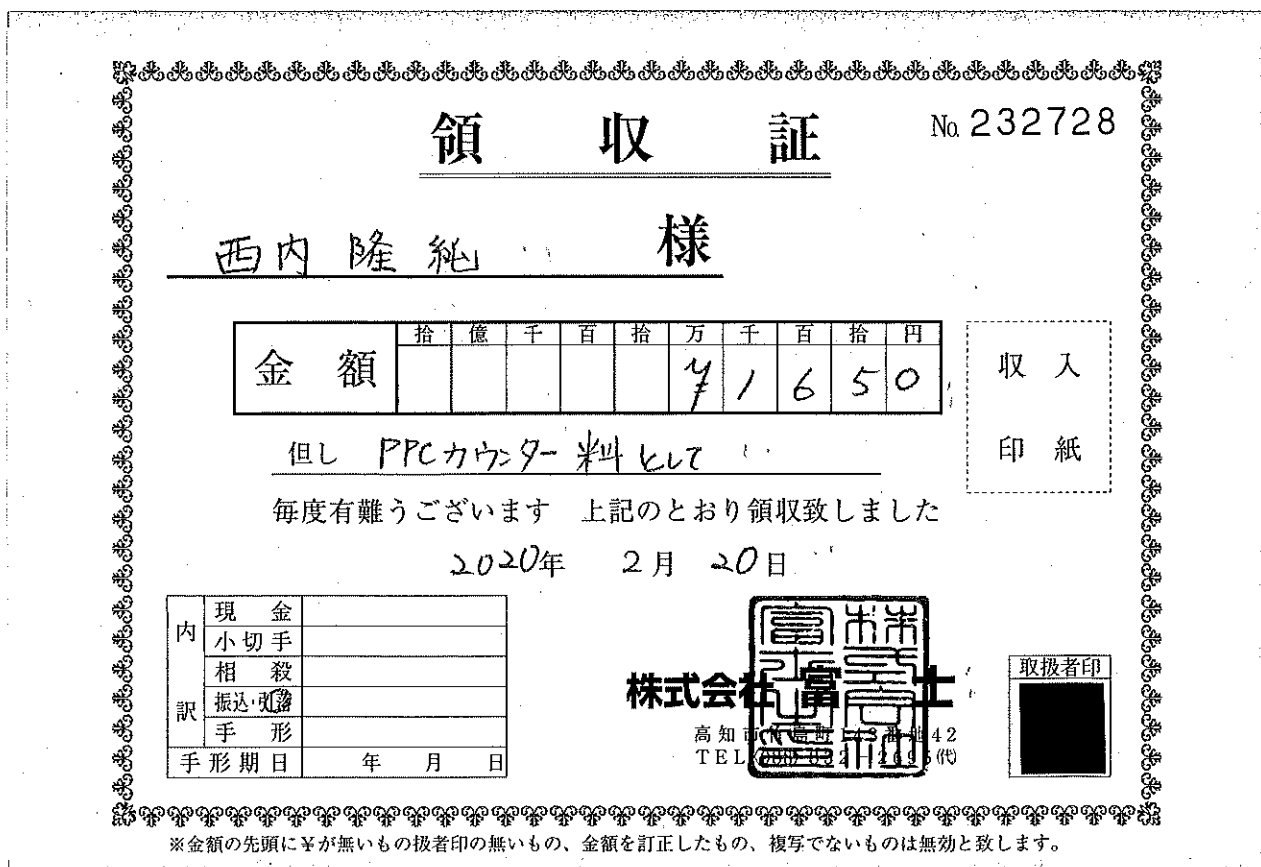 領収証
No. 232728
西内 隆純 様
金額 拾 億 千 百 拾 万 千 百 拾 円
¥1650
収入
印紙
但し PPCカウンター料として
毎度有難うございます 上記のとおり領収致しました
2020年 2月 20日
内訳
現金
小切手
相殺
振込・引落
手形
手形期日 年 月 日
株式会社 富士
高知市 町143番地42
TEL(088)832-2695(代)
取扱者印
※金額の先頭に¥が無いもの扱者印の無いもの、金額を訂正したもの、複写でないものは無効と致します。